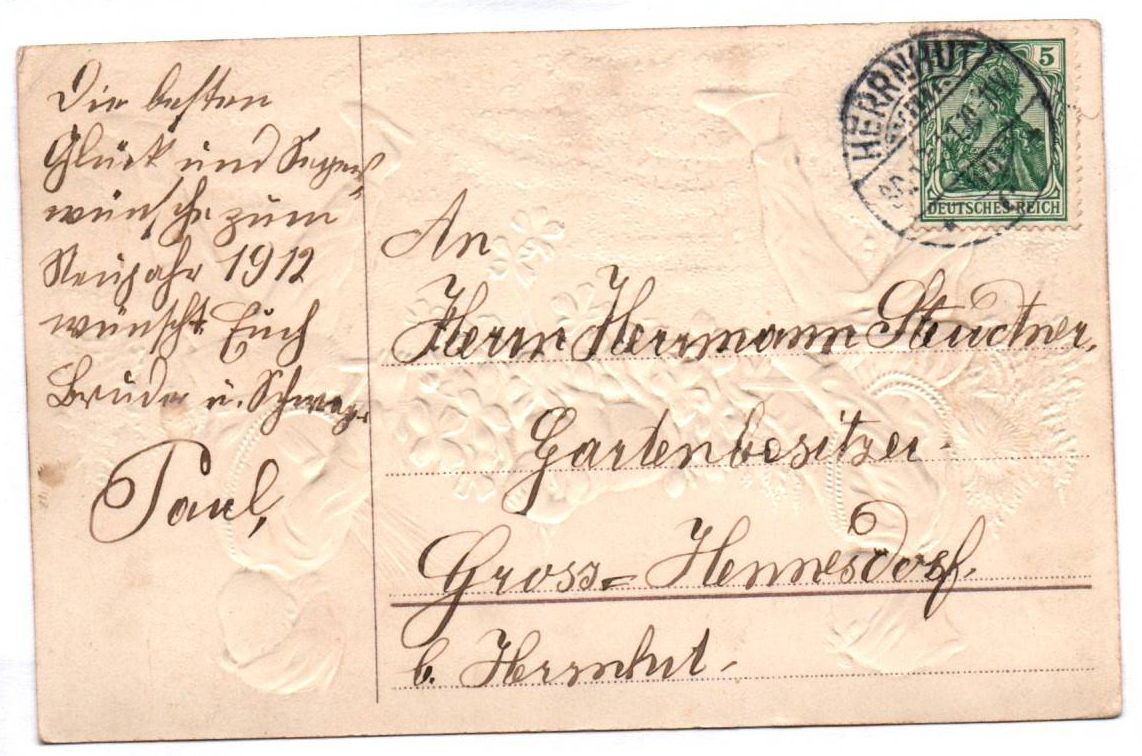 Die besten
Glück und Segens-
wünsche zum
Neujahr 1912
wünscht Euch
Bruder u. Schwager
Paul,
HERRNHUT
5
DEUTSCHES REICH
An
Herrn Herrmann Steudtner,
Gartenbesitzer
Gross-Hennersdorf.
b. Herrnhut.